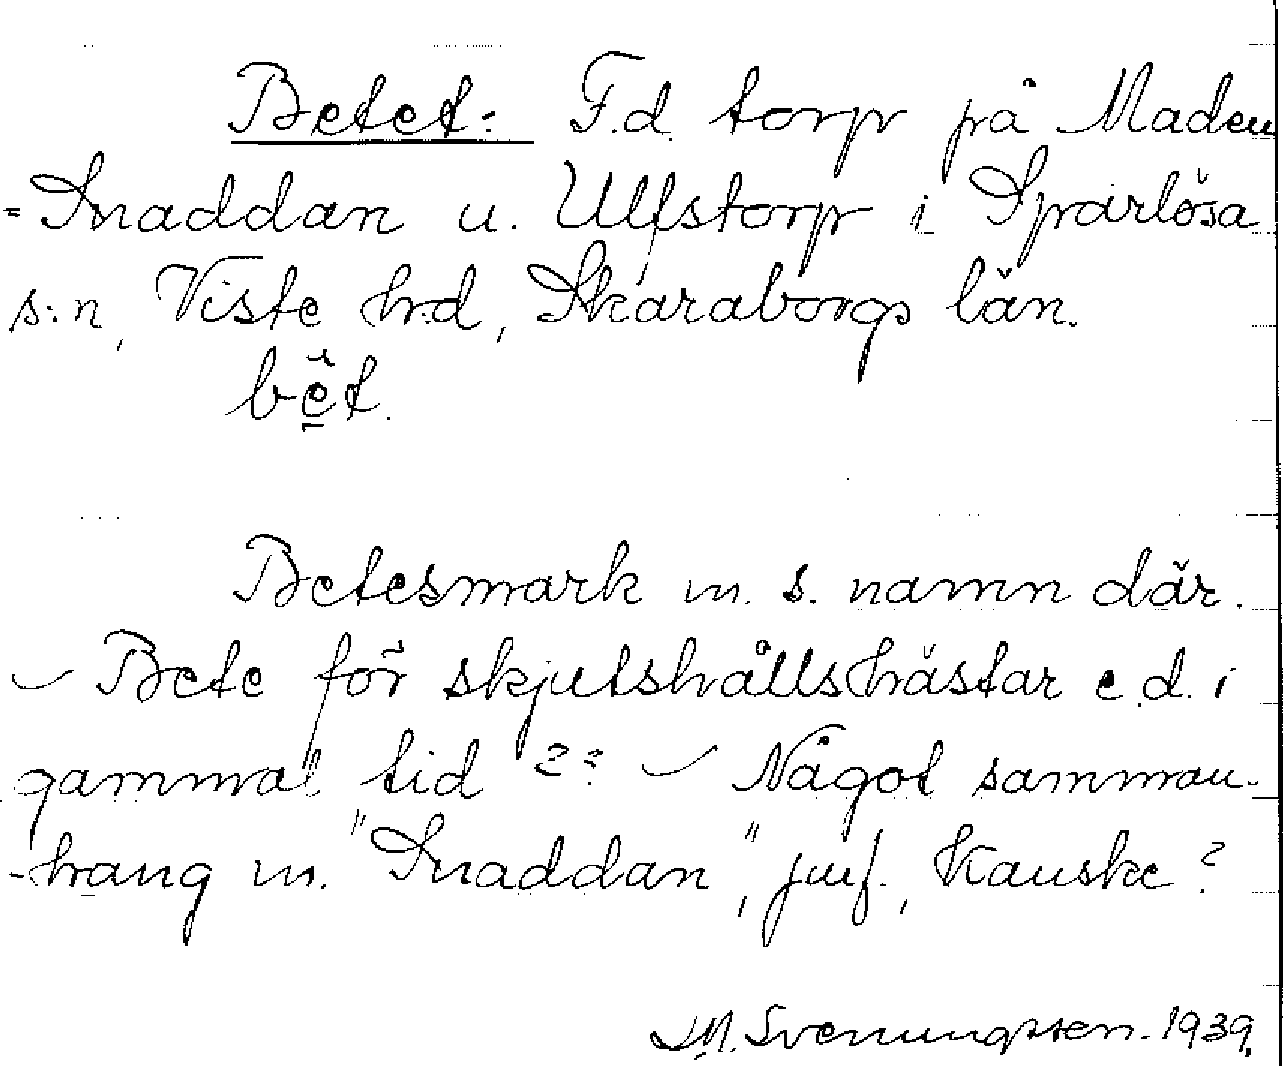 Betet: F.d. torp på Maden
=Snaddan u. Ulfstorp i Spärlösa
s:n, Viste hrd, Skaraborgs län.
bèt.
Betesmark m. s. namn där.
– Bete för skjutshållshästar e.d. i
gammal tid ?? – Något samman-
-hang m. "Snaddan", jmf., kanske?
Svenungsson. 1939.